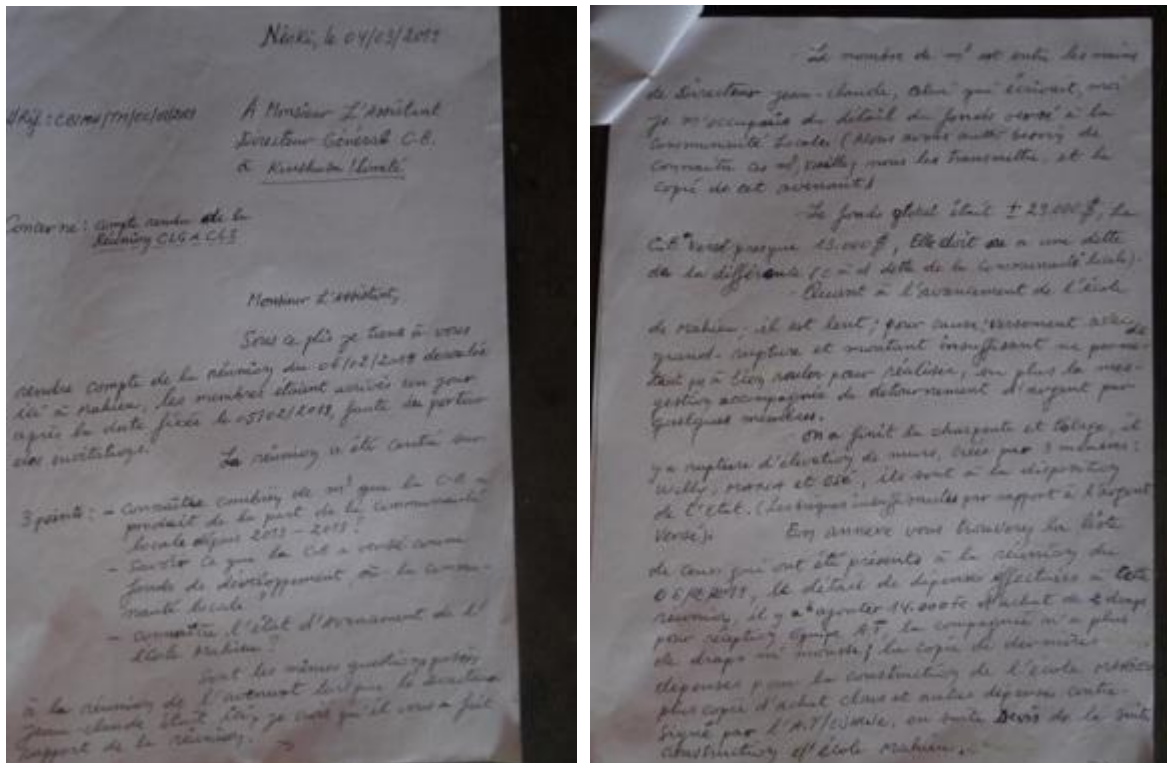 Nioki, le 04/03/2019
A Monsieur L'Assistant
Directeur Général C.B.
à Kinshasa/Limeté
Concerne: Compte rendu de la
Réunion CLG & CLS
Monsieur L'Assistant,
Sous ce plis je tiens à vous
rendre compte de la réunion du 06/02/2019
ici à Mahieu, les membres étaient arrivés un jour
après la date fixée le 05/02/2019, faute du porteur
des invitations.
La réunion a été centré sur
3 points: - Connaître combien de m³ que la C.B a
produit de la part de la Communauté
locale depuis 2013 - 2019?
- Savoir ce que la C.B a versé comme
fonds de développement à la commu-
nauté locale?
- Connaître l'état d'avancement de l'
école Mahieu?
Sont les mêmes questions posées
à la réunion de l'avenant lorsque le Directeur
Jean-Claude était ici, je crois qu'il vous a fait
rapport de la réunion.
- Le nombre de m³ est entre les mains
de Directeur Jean-Claude, celui qui écrivait, moi
je m'occupais du détail du fonds versé à la
Communauté Locale (Nous avons aussi besoin de
connaître ces m³, veuillez nous les transmettre, et la
copie de cet avenant)
- Le fonds global était ± 29.000 $, la
C.B versé presque 13.000 $, Elle doit a une dette
de la différence (c à d dette de la Communauté locale).
- Quant à l'avancement de l'école
de Mahieu, il est lent; pour cause: versement avec
grand rupture et montant insuffisant ne permet-
tant pas à bien rouler pour réaliser, en plus la
gestion accompagnée de détournement d'argent par
quelques membres.
- On a finit la charpente et tôlage, il
y a rupture d'élévation de murs, par 3 membres:
Willy, et OSÉ, ils sont à la disposition
de l'Etat. (Les briques insuffisantes par rapport à l'argent
versé).
En annexe vous trouverez la liste
de ceux qui ont été présents à la réunion du
06/02/2019, le détail de dépenses effectuées à cette
réunion, il y a à ajouter 14.000 FC d'achat de 2 draps
pour réception équipe A.T, la compagnie n'a plus
de draps ni mousse; la copie de dernières
dépenses pour la construction de l'école Mahieu
plus copie d'achat clous et autres dépenses contre-
signé par l'A.T/, en suite Devis de la suite
construction d'école Mahieu.